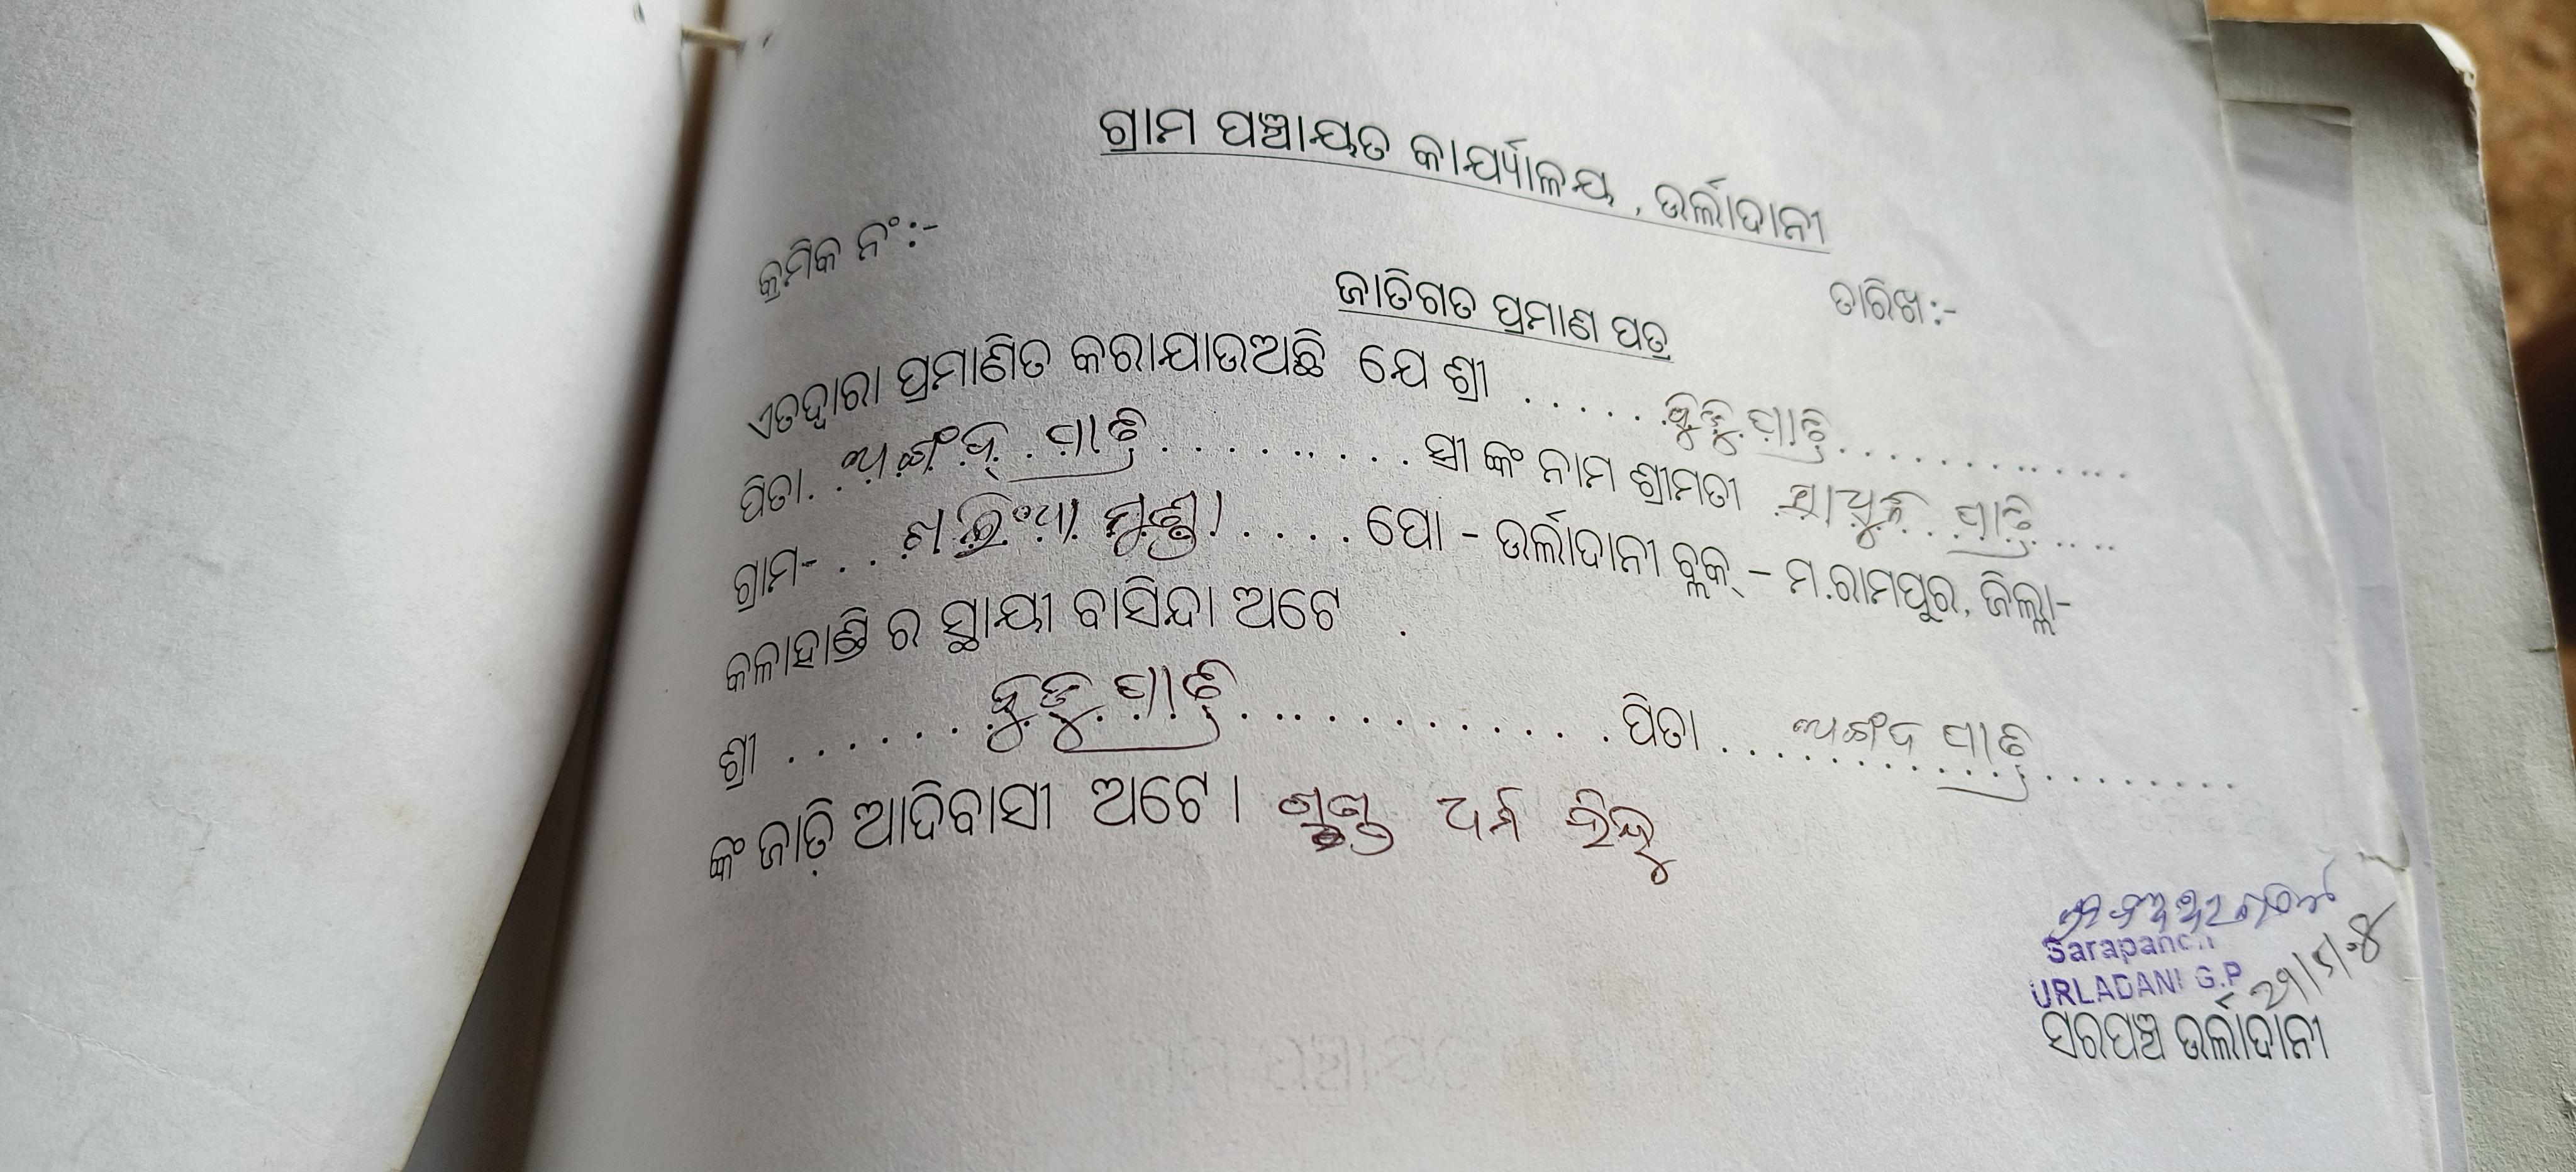 ଗ୍ରାମ ପଞ୍ଚାୟତ କାର୍ଯ୍ୟାଳୟ , ଉର୍ଲାଦାନୀ
କ୍ରମିକ ନଂ:-
ତାରିଖ:-
ଜାତିଗତ ପ୍ରମାଣ ପତ୍ର
ଏତଦ୍ୱାରା ପ୍ରମାଣିତ କରାଯାଉଅଛି ଯେ ଶ୍ରୀ ..... ମାଝି ............
ପିତା.. ମାଝି .......... ସ୍ତ୍ରୀ ଙ୍କ ନାମ ଶ୍ରୀମତୀ ମାଝି ....
ଗ୍ରାମ- ... ମୁଣ୍ଡା .... ପୋ - ଉର୍ଲାଦାନୀ ବ୍ଲକ୍ – ମ.ରାମପୁର, ଜିଲ୍ଲା-
କଳାହାଣ୍ଡି ର ସ୍ଥାୟୀ ବାସିନ୍ଦା ଅଟେ .
ଶ୍ରୀ ....... ମାଝି .............. ପିତା ... ମାଝି ........
ଙ୍କ ଜାତି ଆଦିବାସୀ ଅଟେ । ଧର୍ମ ହିନ୍ଦୁ
Sarapanch
URLADANI G.P
ସରପଞ୍ଚ ଉର୍ଲାଦାନୀ